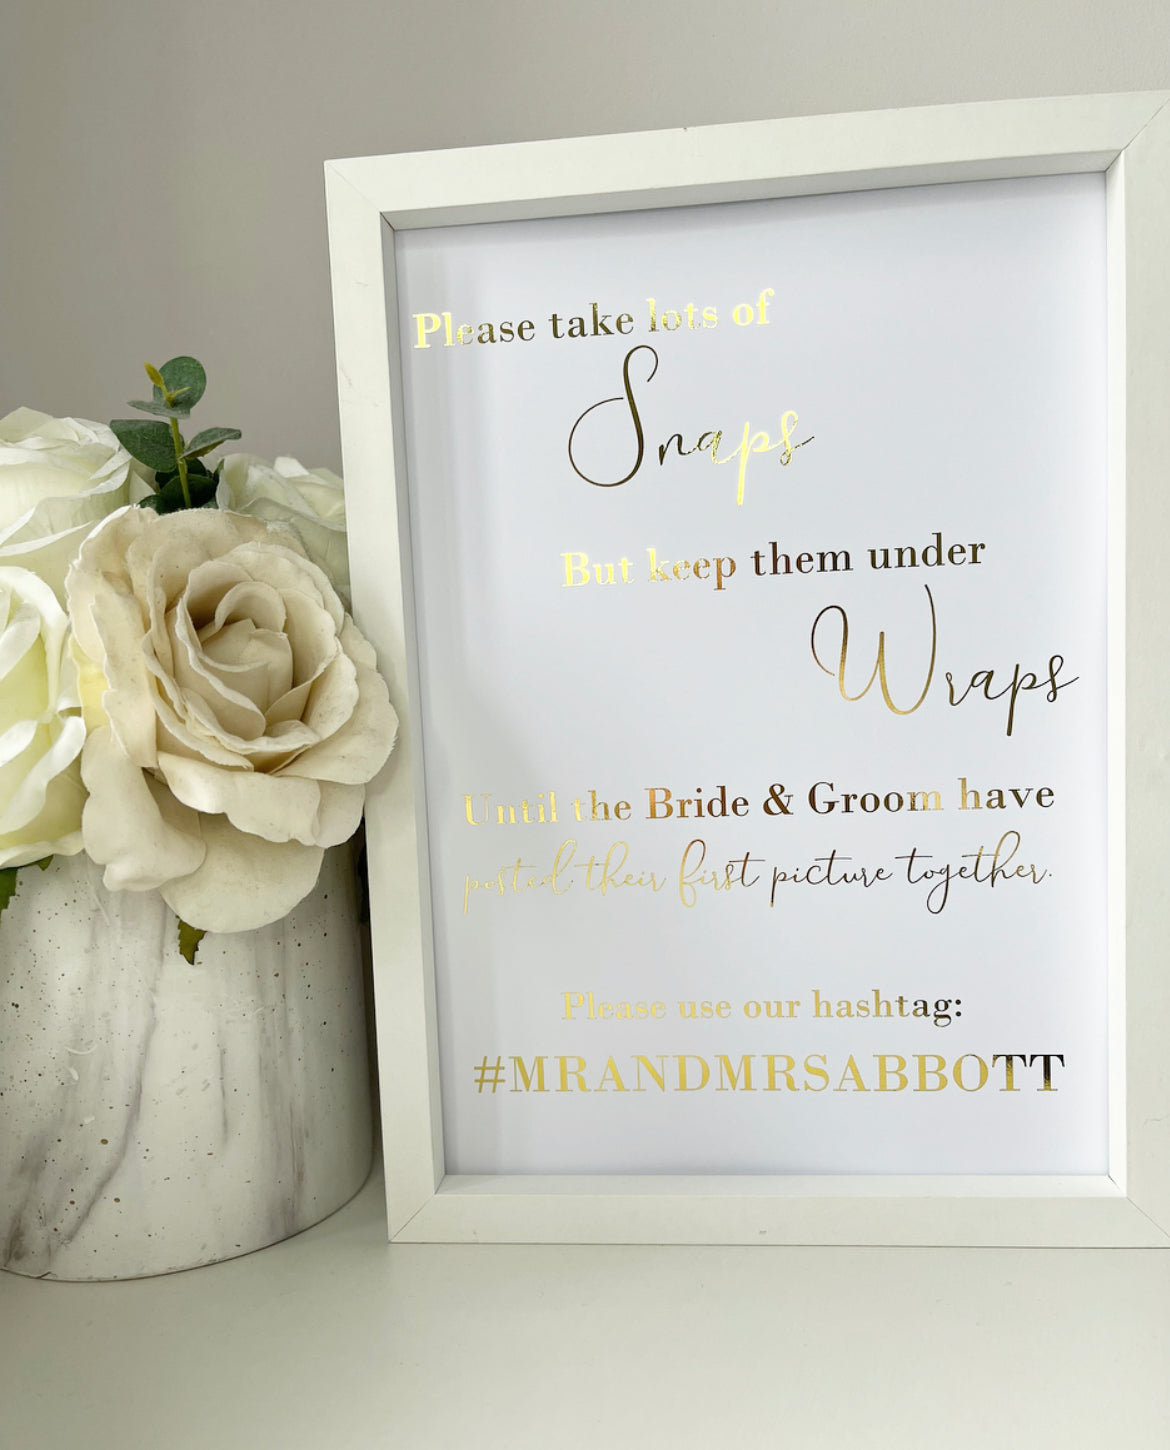 Please take lots of
Snaps
But keep them under
Wraps
Until the Bride & Groom have
posted their first picture together.
Please use our hashtag:
#MRANDMRSABBOTT